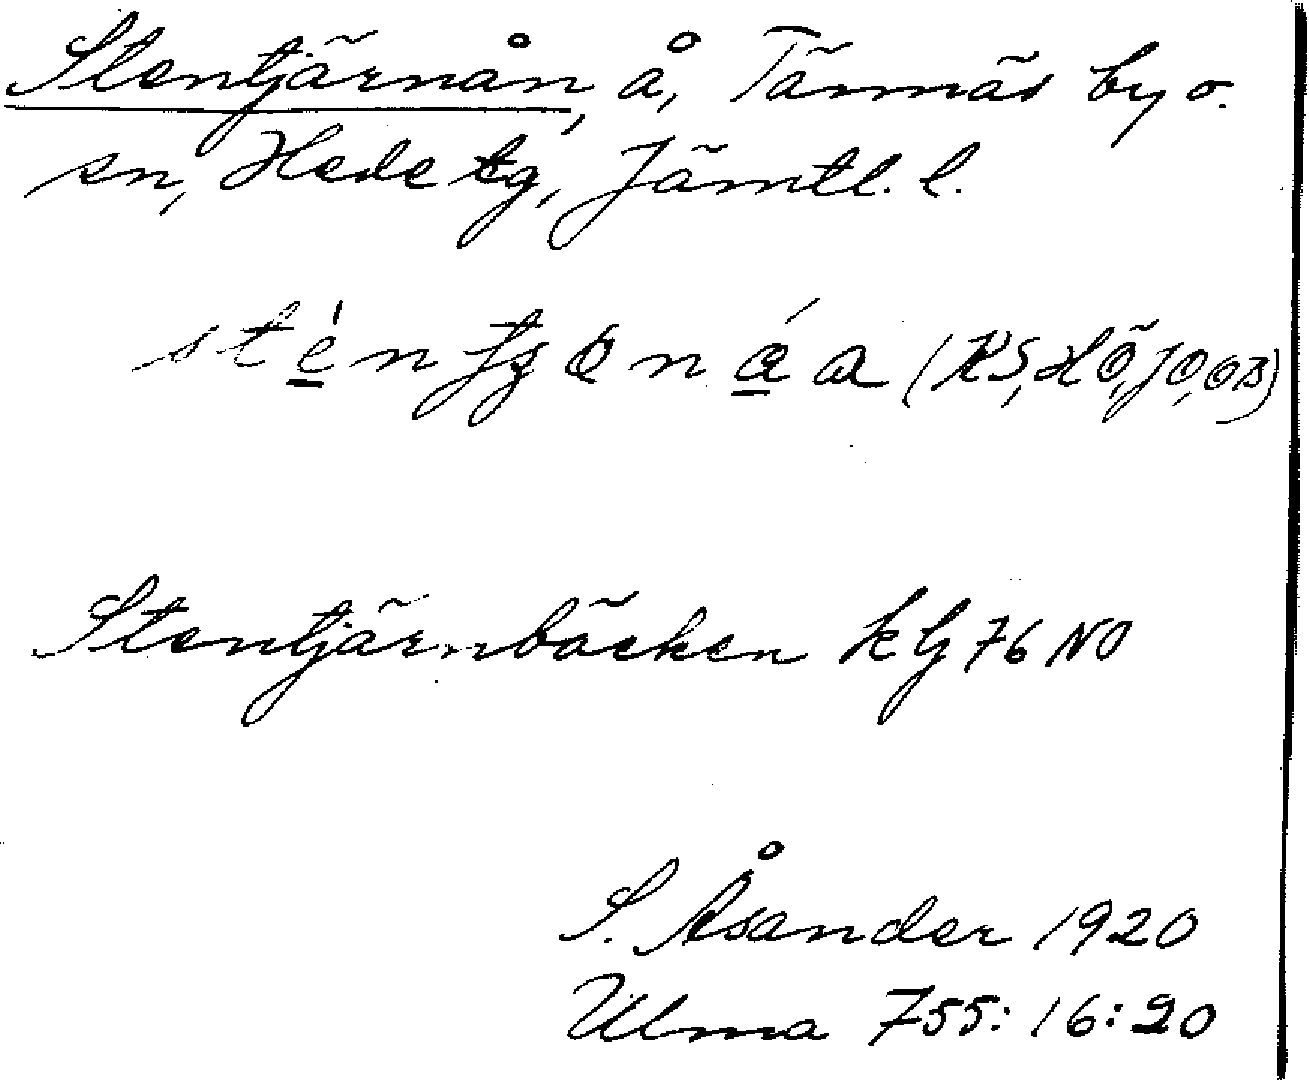 Stentjärnån, å, Tännäs by o.
sn, Hede tg, Jämtl. l.
(KS, HÖ, JO, OB)
Stentjärnbäcken kG 76 NO
S. Åsander 1920
Ulma 755:16:20